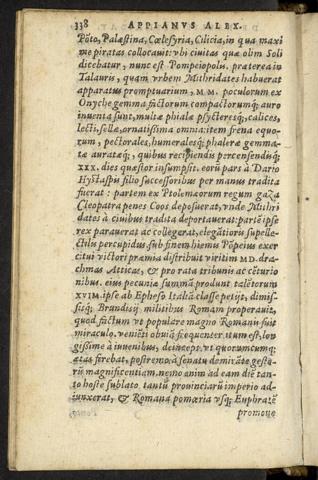 338 APPIANVS ALEX.
Põto, Palæstina, Cœlesyria, Cilicia, in qua maxi
me piratas collocauit: vbi ciuitas quæ olim Soli
dicebatur, nunc est Pompeiopolis. præterea in
Talauris, quam vrbem Mithridates habuerat
apparatus promptuarium, M.M. poculorum ex
Onyche gemma factorum compactorumq; auro
inuenta sunt, multæ phialæ psycteresq;, calices,
lecti, sellæ, ornatissima omnia: item frena equo-
rum, pectorales, humeralesq; phaleræ gemma-
tæ auratæq;, quibus recipiendis percensendisq;
XXX. dies quæstor insumpsit. eorũ pars à Dario
Hystaspis filio successoribus per manus tradita
fuerat: partem ex Ptolemæorum regum gaza
Cleopatra penes Coos deposuerat, vnde Mithri
dates à ciuibus tradita deportauerat: partẽ ipse
rex parauerat ac collegerat, elegãtioris supelle-
ctilis percupidus. sub finem hiemis Põpeius exer
citui victori præmia distribuit viritim MD. dra-
chmas Atticas, & pro rata tribunis ac cẽturio
nibus. eius pecuniæ summã produnt talẽtorum
XVIM. ipse ab Epheso Italiã classe petijt, dimis-
sisq; Brundisij militibus Romam properauit,
quod factum vt populare magno Romanis fuit
miraculo. veniẽti obuiã frequenter itum est, lon
gissime à iuuenibus, deinceps vt quorumcumq;
ætas ferebat, postremo à senatu demirãte gesto-
rũ magnificentiam. nemo enim ad eam diẽ tan-
to hoste sublato tantũ prouinciarũ imperio ad-
iunxerat, & Romana pomœria vsq; Euphratẽ
promoue